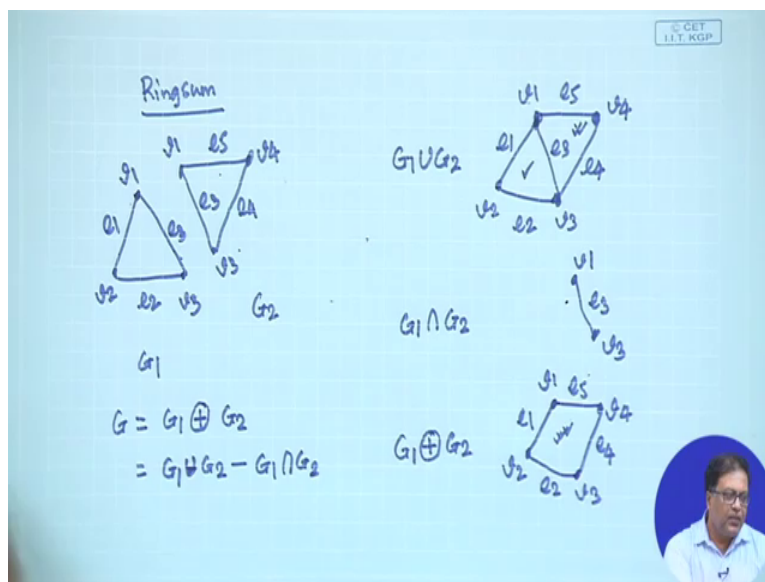 © CET
I.I.T. KGP
Ringsum
v1 e5 v4
v1
e3 e4
e1 e3
v3
v2 e2 v3
G2
G1
G = G1 ⊕ G2
= G1 ∪ G2 - G1 ∩ G2
v1 e5 v4
G1 ∪ G2
e1 e3 e4
v2 e2 v3
G1 ∩ G2
v1
e3
v3
G1 ⊕ G2
v1 e5 v4
e1 e4
v2 e2 v3